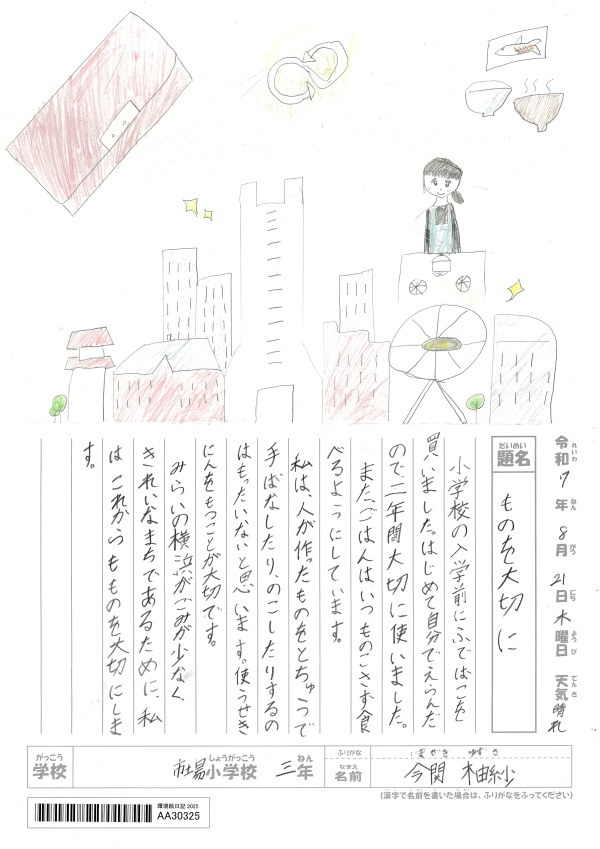 令和7年8月21日木曜日 天気晴れ
題名 ものを大切に
小学校の入学前にふではこを
買いました。はじめて自分でえらんだ
ので、二年間大切に使いました。
また、ごはんはいつものこさず食
べるようにしています。
私は、人が作ったものをとちゅうで
手ばなしたり、のこしたりするの
はもったいないと思います。使うせき
にんをもつことが大切です。
みらいの横浜がごみが少なく、
きれいなまちであるために、私
はこれからもものを大切にしま
す。
学校 市場小学校 三年 名前 今関 柚紗
がっこう しょうがっこう ねん ふりがな なまえ いまぜき ゆずさ
(漢字で名前を書いた場合は、ふりがなをふってください)
環境絵日記 2025
AA30325